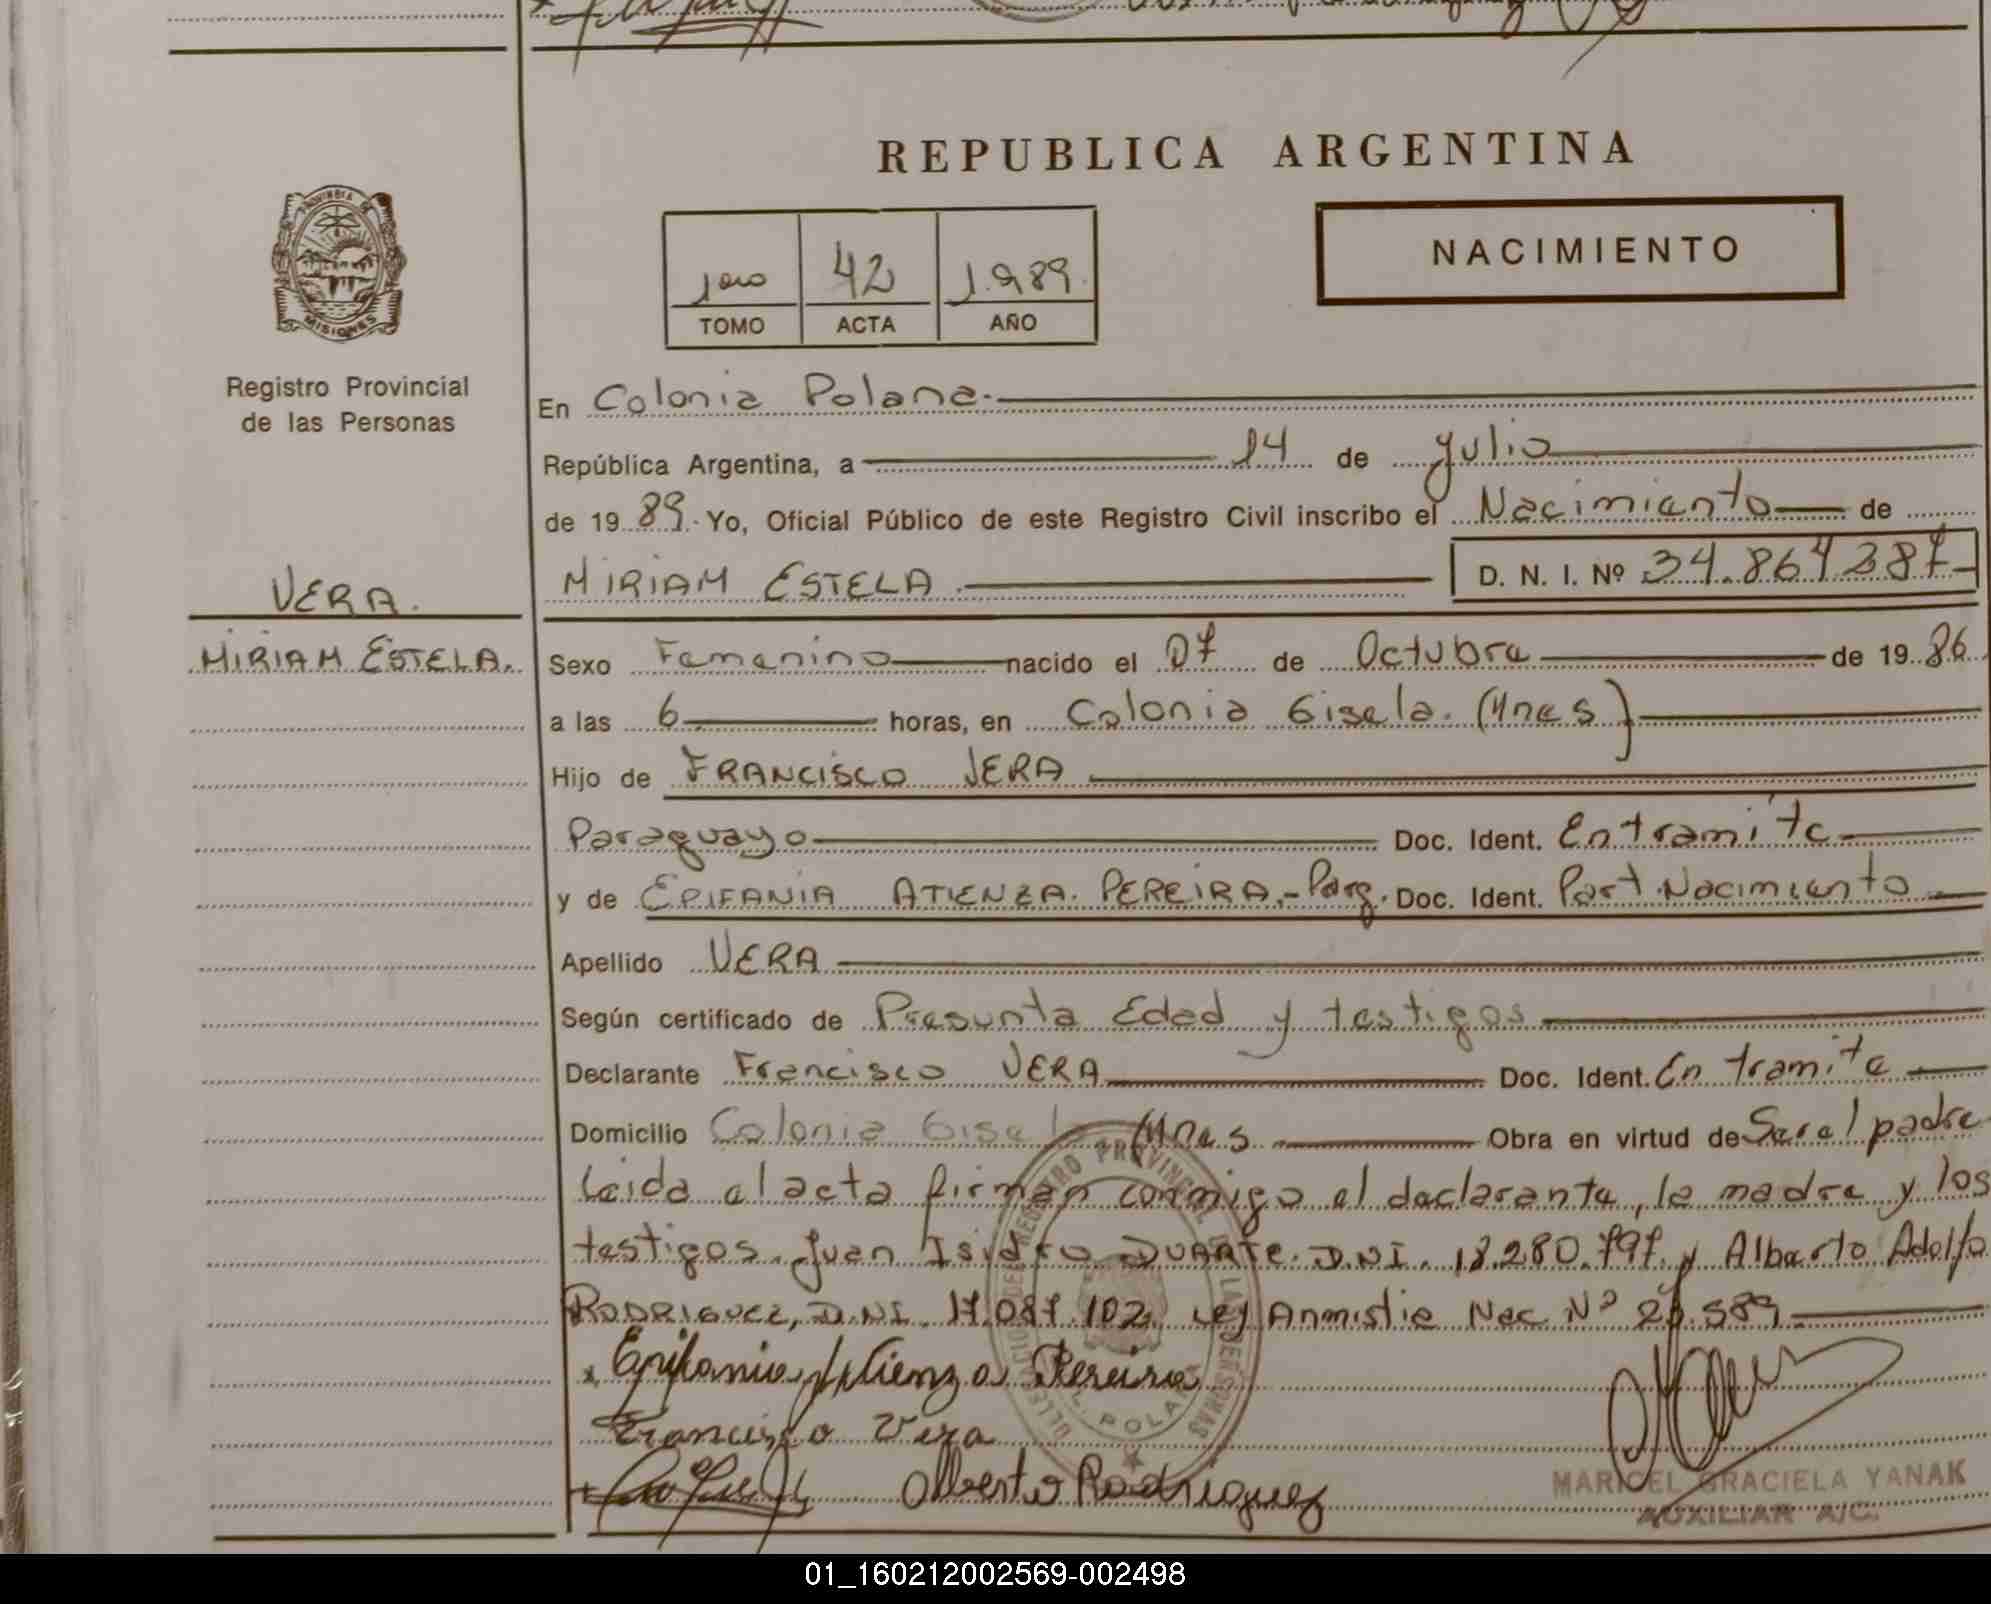 REPUBLICA ARGENTINA
PROVINCIA DE
MISIONES
1ero 42 1.989.
TOMO ACTA AÑO
NACIMIENTO
Registro Provincial
de las Personas
En Colonia Polana.
República Argentina, a 14 de Julio
de 19 89. Yo, Oficial Público de este Registro Civil inscribo el Nacimiento de
VERA.
MIRIAM ESTELA.
MIRIAM ESTELA. D. N. I. Nº 34.864.387
Sexo Femenino nacido el 07 de Octubre de 19 86
a las 6 horas, en Colonia Gisela. (Mnes)
Hijo de FRANCISCO VERA
Paraguayo Doc. Ident. En tramite
y de EPIFANIA ATIENZA. PEREIRA.- Parg. Doc. Ident. Part. Nacimiento
Apellido VERA
Según certificado de Presunta Edad y testigos
Declarante Francisco VERA Doc. Ident. En tramite
Domicilio Colonia Gisel Mnes Obra en virtud de Ser el padre
Leida el acta firman conmigo el declarante, la madre y los
testigos. Juan Isidro DUARTE. D.N.I. 18.280.797. y Alberto Adolfo
RODRIGUEZ, D.N.I. 17.087.102. Ley Anmistia Nac Nº 23.589
x Epifania Atienza Pereira
Francisco Vera
Alberto Rodriguez
MARICEL GRACIELA YANAK
AUXILIAR A/C.
01_160212002569-002498